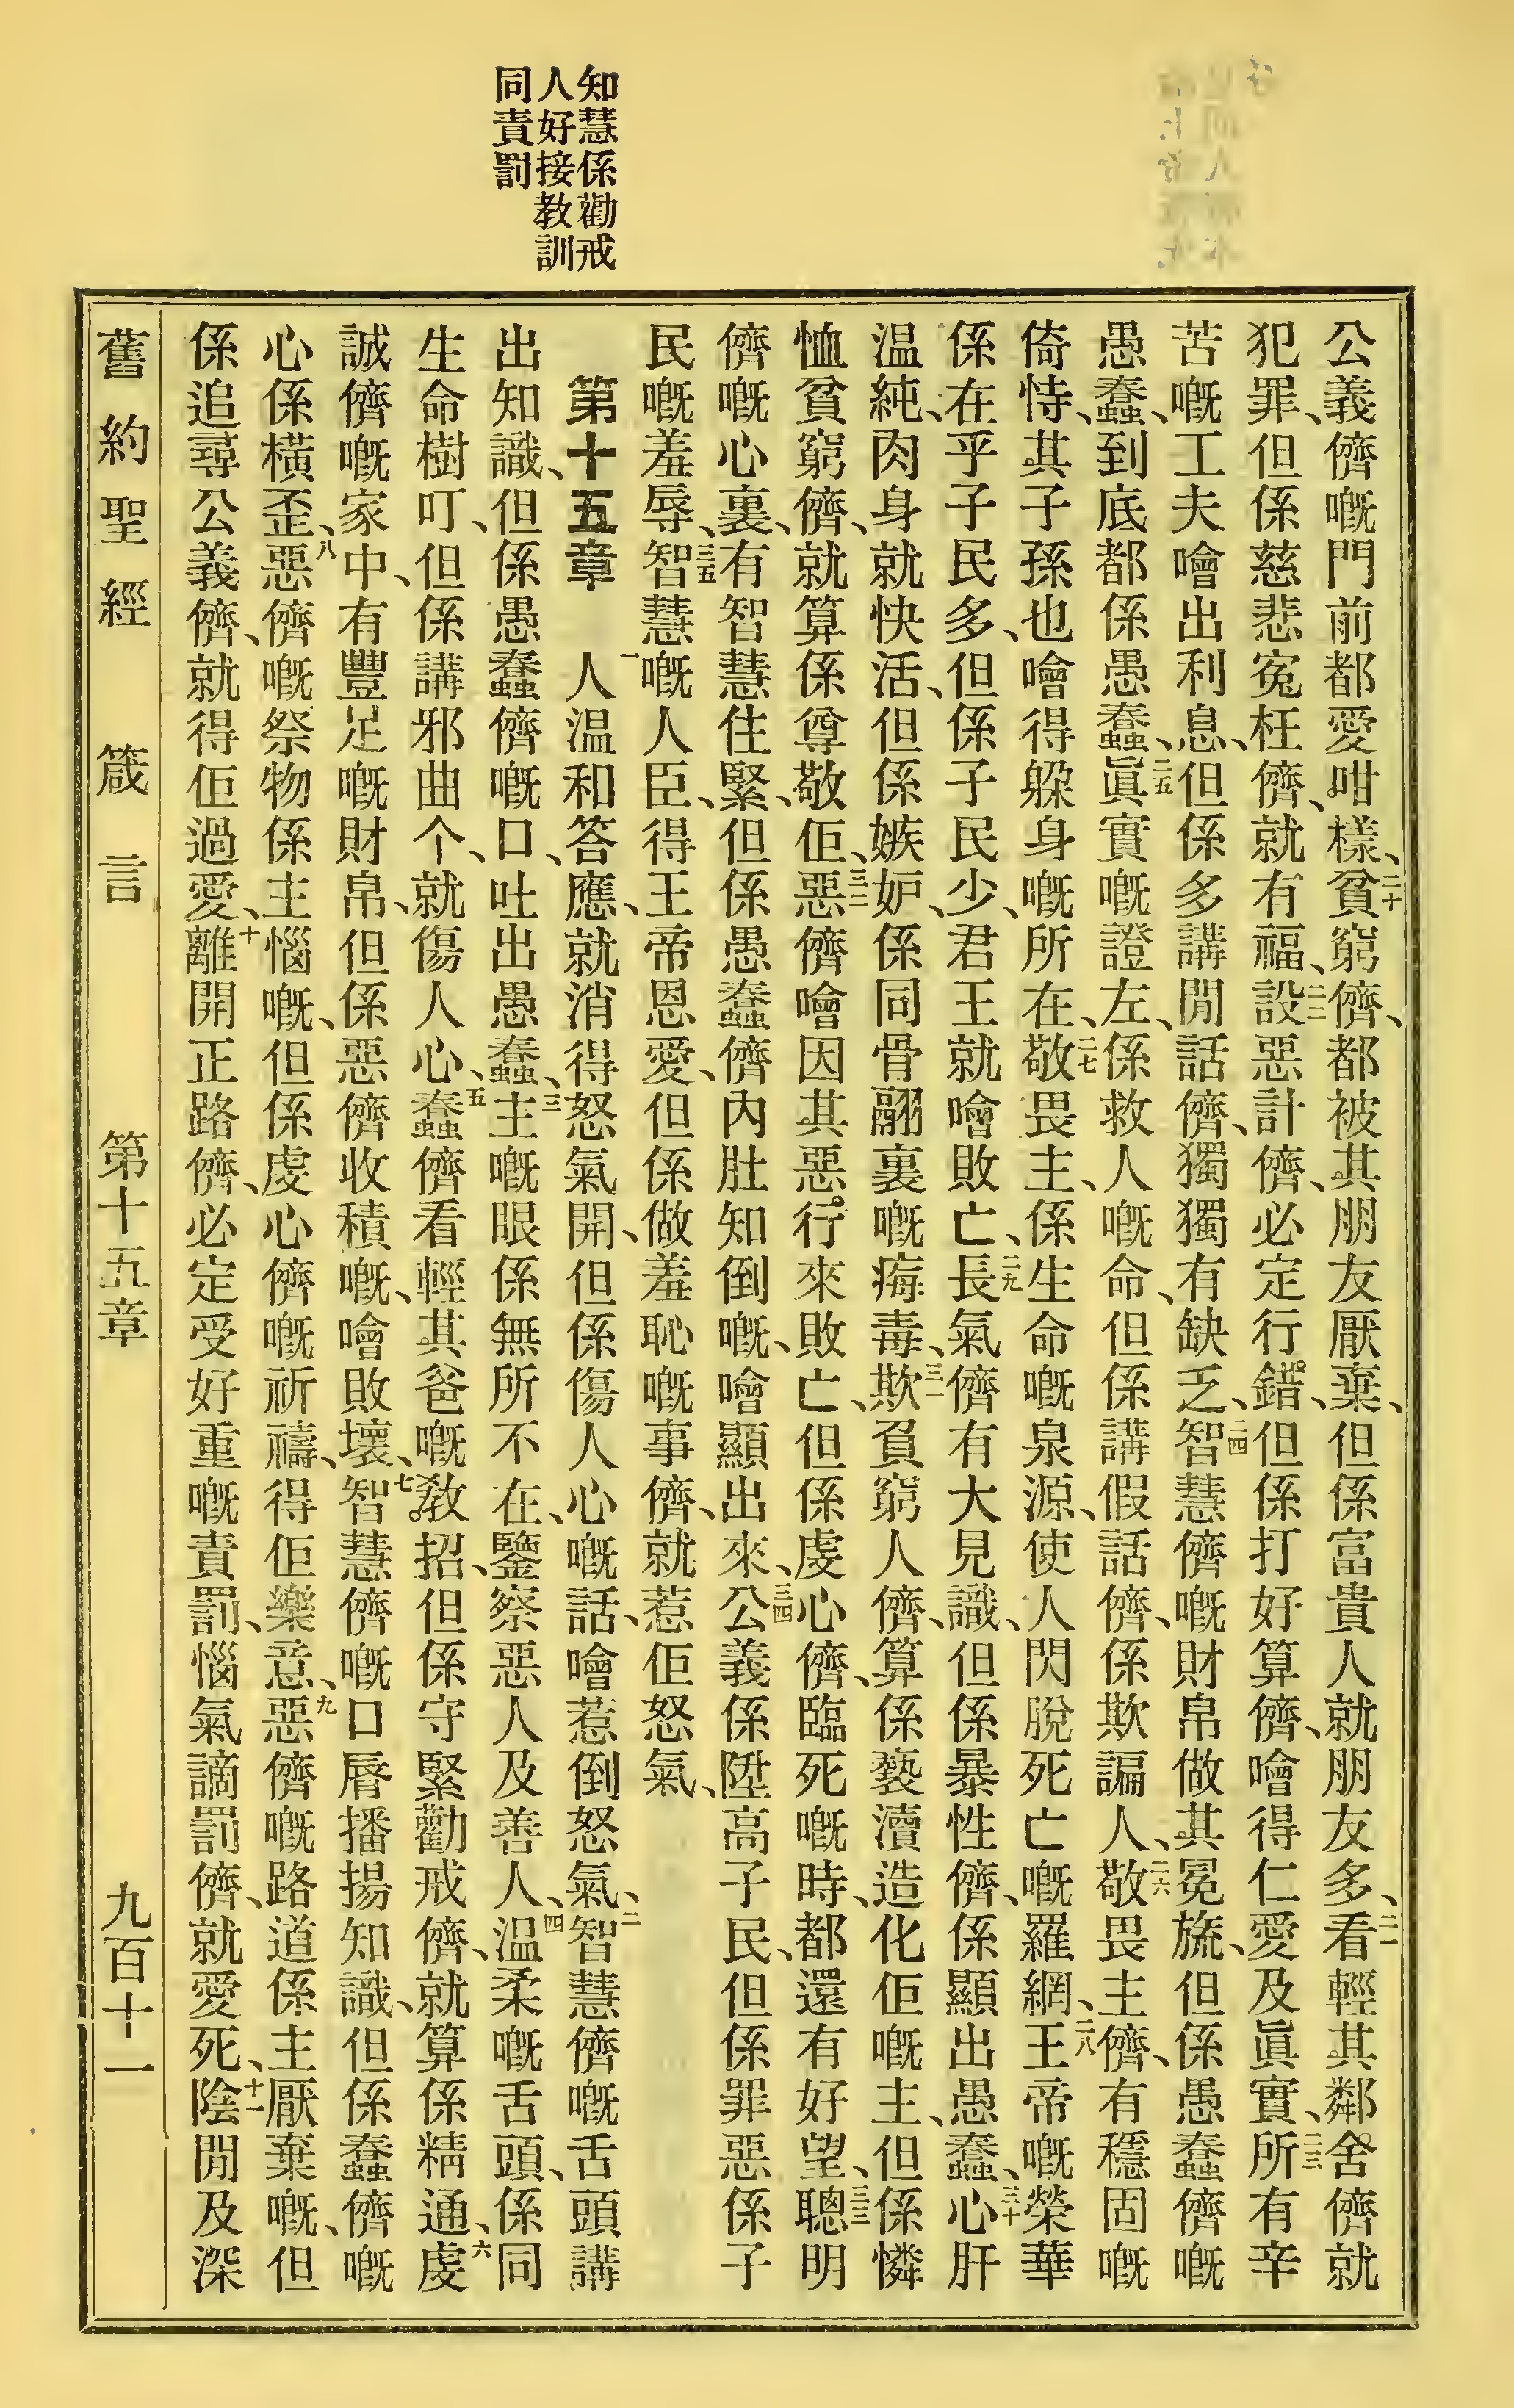 知慧係勸戒
人好接教訓
同責罰
公義儕嘅門前都愛咁樣、二十貧窮儕、都被其朋友厭棄、但係富貴人就朋友多、二一看輕其鄰舍儕就
犯罪、但係慈悲寃枉儕、就有福、二二設惡計儕、必定行錯、但係打好算儕、噲得仁愛及眞實、二三所有辛
苦嘅工夫噲出利息、但係多講閒話儕、獨獨有缺乏、二四智慧儕嘅財帛做其冕旒、但係愚蠢儕嘅
愚蠢、到底都係愚蠢、二五眞實嘅證左、係救人嘅命、但係講假話儕、係欺騙人、二六敬畏主儕、有穩固嘅
倚恃、其子孫也噲得躲身嘅所在、二七敬畏主、係生命嘅泉源、使人閃脫死亡嘅羅網、二八王帝嘅榮華
係在乎子民多、但係子民少、君王就噲敗亡、二九長氣儕有大見識、但係暴性儕、係顯出愚蠢、三十心肝
温純、肉身就快活、但係嫉妒、係同骨𦡀裏嘅痗毒、三一欺負窮人儕、算係褻瀆造化佢嘅主、但係憐
恤貧窮儕、就算係尊敬佢、三二惡儕噲因其惡行來敗亡、但係虔心儕、臨死嘅時、都還有好望、三三聰明
儕嘅心裏、有智慧住緊、但係愚蠢儕內肚知倒嘅、噲顯出來、三四公義係陞高子民、但係罪惡係子
民嘅羞辱、三五智慧嘅人臣、得王帝恩愛、但係做羞恥嘅事儕、就惹佢怒氣、
第十五章　一人温和答應、就消得怒氣開、但係傷人心嘅話、噲惹倒怒氣、二智慧儕嘅舌頭講
出知識、但係愚蠢儕嘅口、吐出愚蠢、三主嘅眼係無所不在、鑒察惡人及善人、四温柔嘅舌頭、係同
生命樹叮、但係講邪曲个、就傷人心、五蠢儕看輕其爸嘅教招、但係守緊勸戒儕、就算係精通、六虔
誠儕嘅家中、有豐足嘅財帛、但係惡儕收積嘅、噲敗壞、七智慧儕嘅口脣播揚知識、但係蠢儕嘅
心係橫歪、八惡儕嘅祭物係主惱嘅、但係虔心儕嘅祈禱、得佢樂意、九惡儕嘅路道係主厭棄嘅、但
係追尋公義儕、就得佢過愛、十離開正路儕、必定受好重嘅責罰、惱氣謫罰儕、就愛死、十一陰間及深
舊約聖經　箴言　第十五章　九百十一